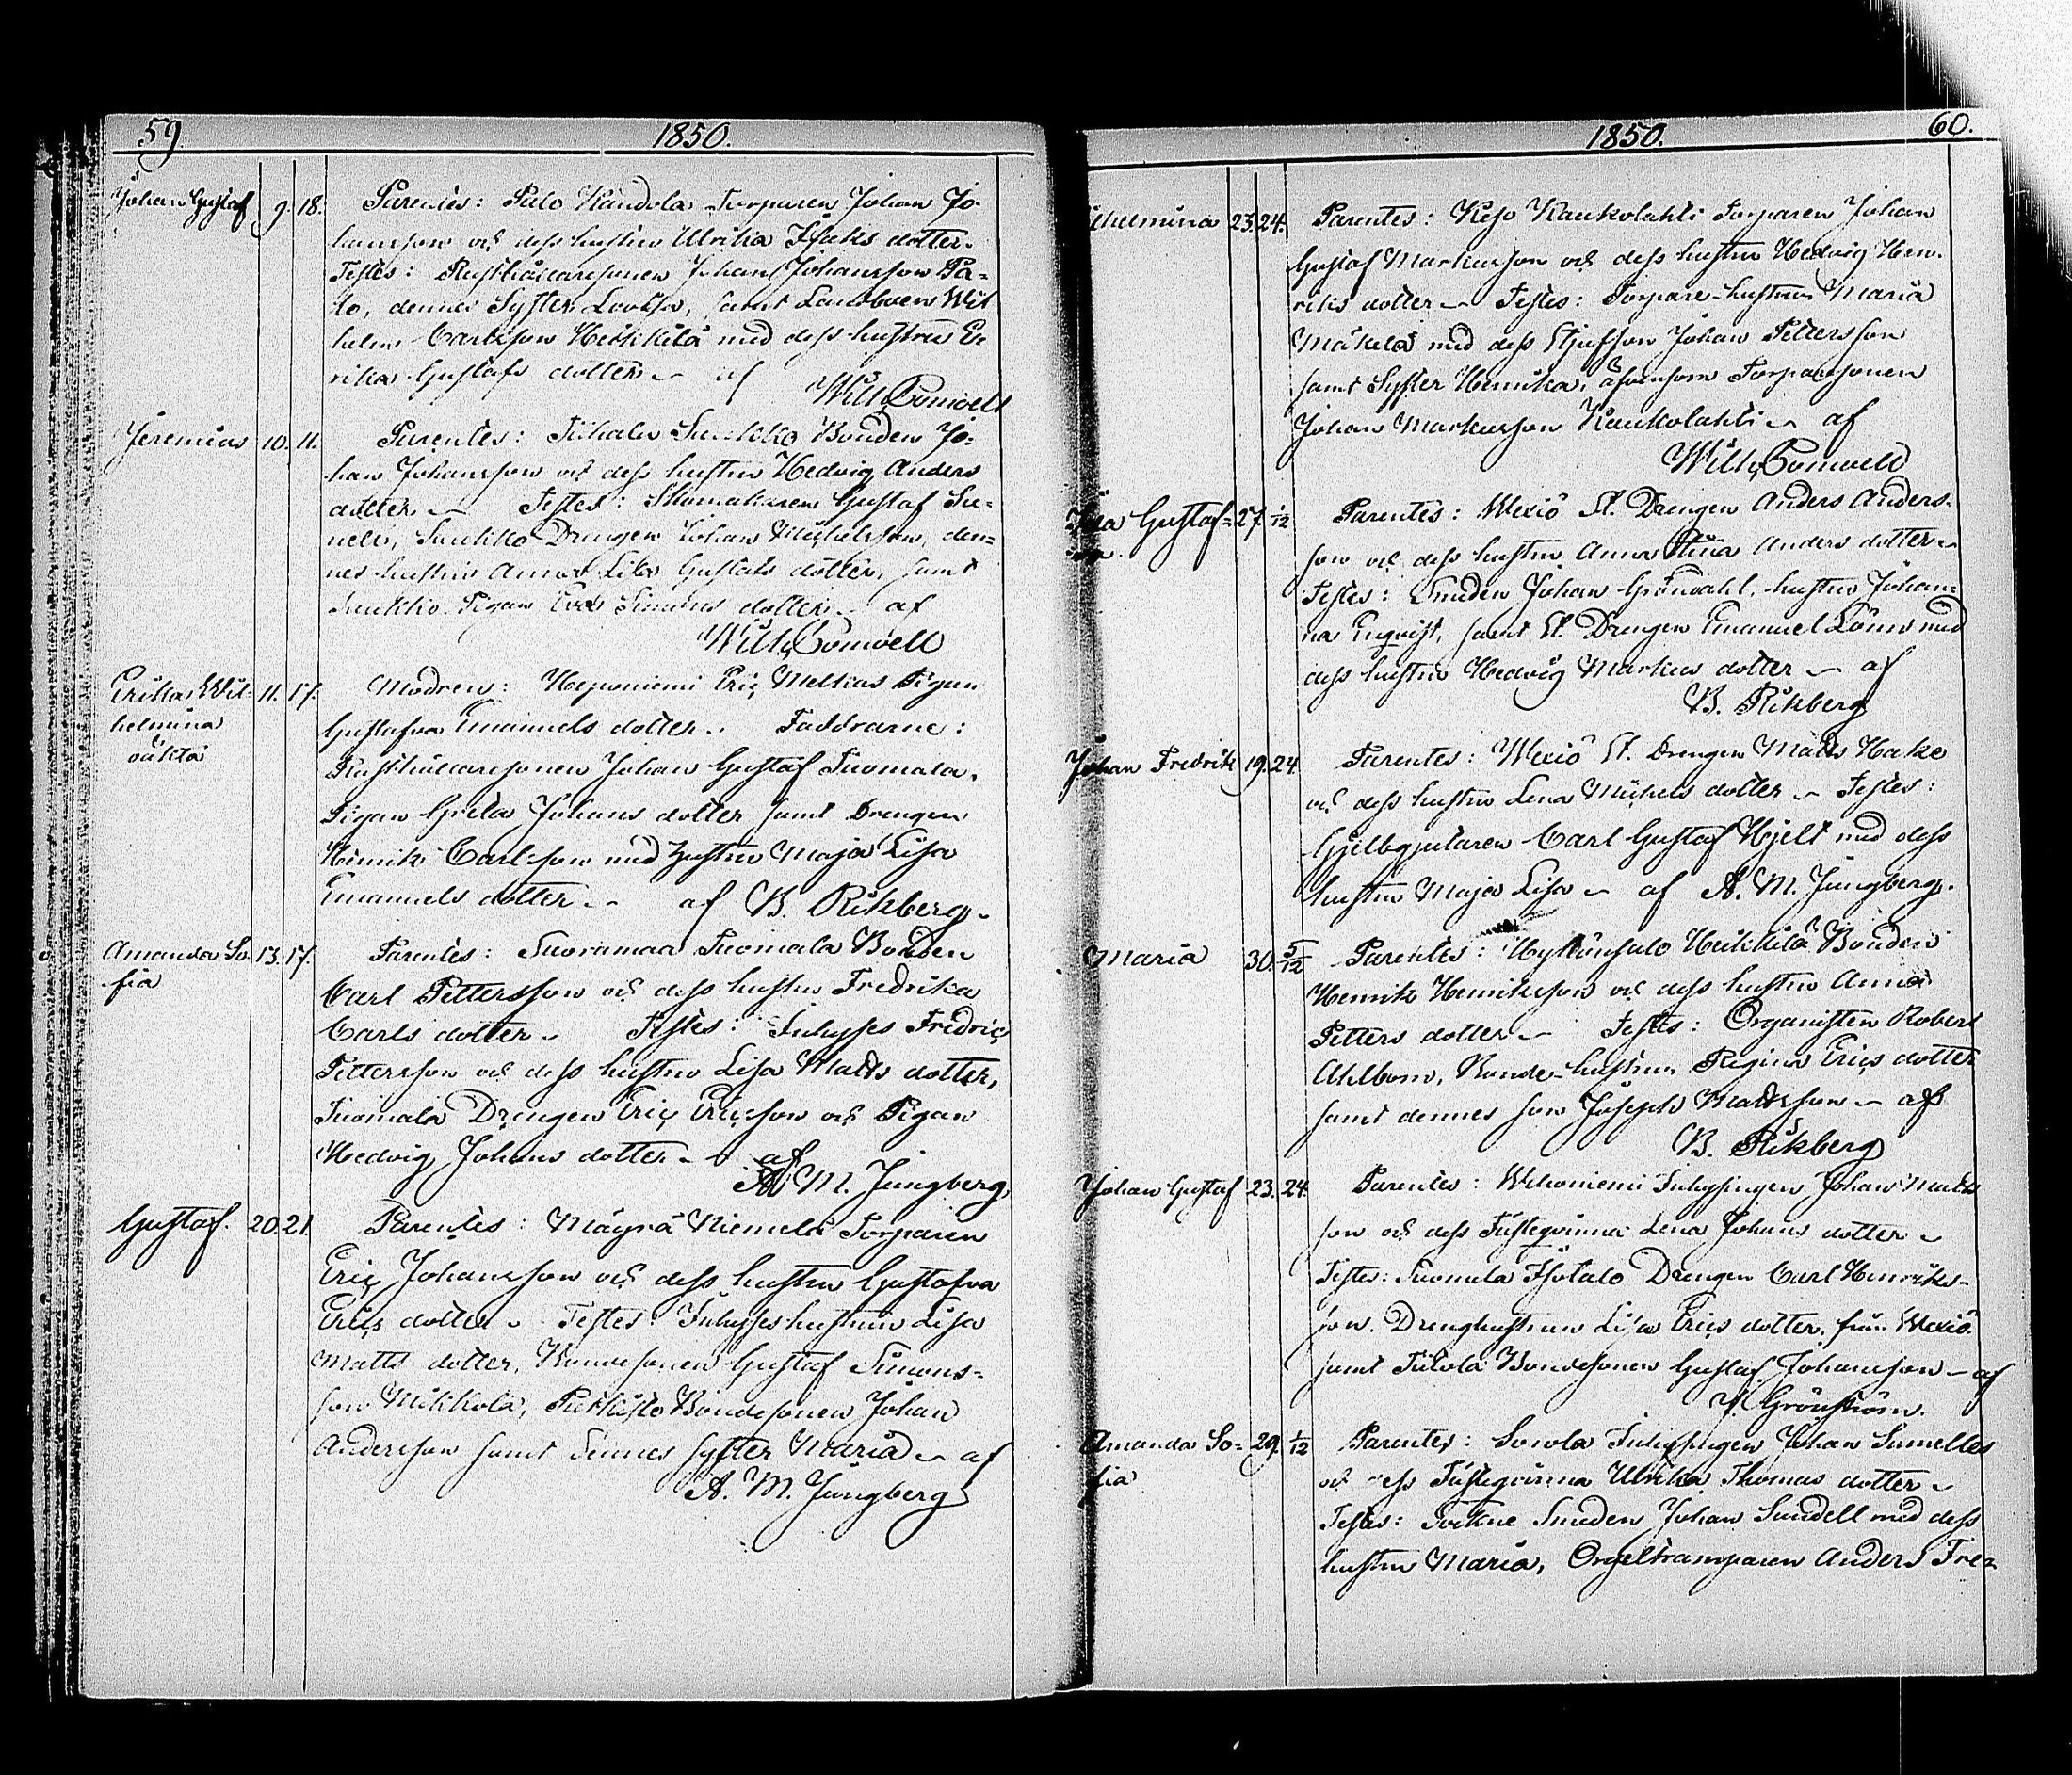 59. 1850.
Johan Gustaf 9. 18. Parentes: Palo Kandola Torparen Johan Jo-
hansson och dess hustru Ulrika Isaks dotter.
Testes: Rusthållaresonen Johan Johansson Pa-
lo, dennes Syster Lovisa, samt Landboen Wil
helm Carlsson Heikkilä med dess hustru E
rika Gustafs dotter. af
Wilh. Bonwell
Jeremias 10. 11. Parentes: Bonden Jo-
han Johansson och dess hustru Hedvig Anders
dotter Testes: Skomakaren Gustaf
Drengen Johan Michelsson, den-
nes hustru Anna Lisa Gustafs dotter, samt
Pigan Eva Simons dotter af
Wilh. Bonwell
Erika Wil- 11. 17. Modren: Heponiemi Eric Mellias Pigan
helmina Gustafva Emanuels dotter. Faddrarne:
oäkta Rusthållaresonen Johan Gustaf Suomala,
Pigan Greta Johans dotter samt Drengen
Henrik Carlsson med hustru Maja Lisa
Emanuels dotter. af B. Rikberg.
Amanda So 13. 17. Parentes: Suoramaa Suomala Bonden
fia Carl Pettersson och dess hustru Fredrika
Carls dotter. Testes: Inhyses Fredric
Pettersson och dess hustru Lisa Matts dotter,
Suomala Drengen Eric Ericsson och Pigan
Hedvig Johans dotter. af
A. M. Jungberg,
Gustaf. 20. 21. Parentes: Mäyrä Niemelä Torparen
Eric Johansson och dess hustru Gustafva
Erics dotter. Testes: Inhyseshustrun Lisa
Matts dotter, Bondesonen Gustaf Simons-
son Mikkola, Bondesonen Johan
Andersson samt dennes syster Maria af
A. M. Jungberg
1850. 60.
ilhelmina 23. 24. Parentes: Kejo Kaukolahti Torparen Johan
Gustaf Markusson och dess hustru Hedvig Hen-
riks dotter Testes: Torpare-hustrun Maria
Mäkelä med dess Stjufson Johan Pettersson
samt Syster Henrika, äfvensom Torparesonen
Johan Markusson Kaukolahti af
Wilh. Bonwell
Gustaf- 27. 1/12 Parentes: Wexiö St. Drengen Anders Anders-
son och dess hustru Anna Stina Anders dotter
Testes: Smeden Johan Grönvahl, hustru Johan-
na Enqvist, samt St. Drengen Emanuel Lönn med
dess hustru Hedvig Markus dotter af
B. Rikberg
Johan Fredrik 19. 24. Parentes: Wexiö St. Drengen Matts Hake
och dess hustru Lena Michels dotter Testes:
Gjelbgjutaren Carl Gustaf Hjelt med dess
hustru Maja Lisa af A. M. Jungberg.
Maria 30. 5/12 Parentes: Heikkilä Bonden
Henrik Henriksson och dess hustru Anna
Petters dotter Testes: Organisten Robert
Ahlbom, Bonde-hustrun Regina Erics dotter
samt dennes son Joseph Mattsson af
B. Rikberg
Johan Gustaf 23. 24. Parentes: Inhysingen Johan Matts
son och dess Fästeqvinna Lena Johans dotter
Testes: Suomela Isotalo Drengen Carl Henriks-
son. Drenghustrun Lisa Erics dotter, från Wexiö.
samt Bondesonen Gustaf Johansson af
Grönström.
Amanda So- 29. 1/12 Parentes: Inhysingen Johan
fia och dess Fästeqvinna Ulrika Thomas dotter
Testes: Sockne Smeden Johan Sundell med dess
hustru Maria, Orgeltramparen Anders Fre-